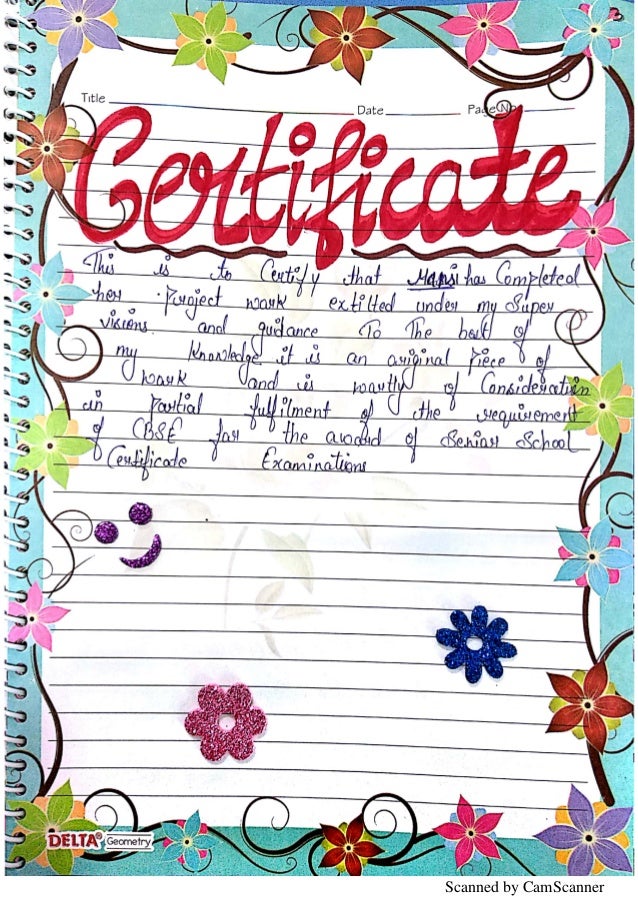 Title Date Page No.
Certificate
This is to Certify that Mansi has Completed
her Project work extilted under my Super
visions and guidance To The best of
my Knowledge it is an original Piece of
work and is worthy of Consideration
in Partial fulfilment of the requirement
of CBSE for the award of Senior School
Certificate Examinations
DELTA® Geometry
Scanned by CamScanner